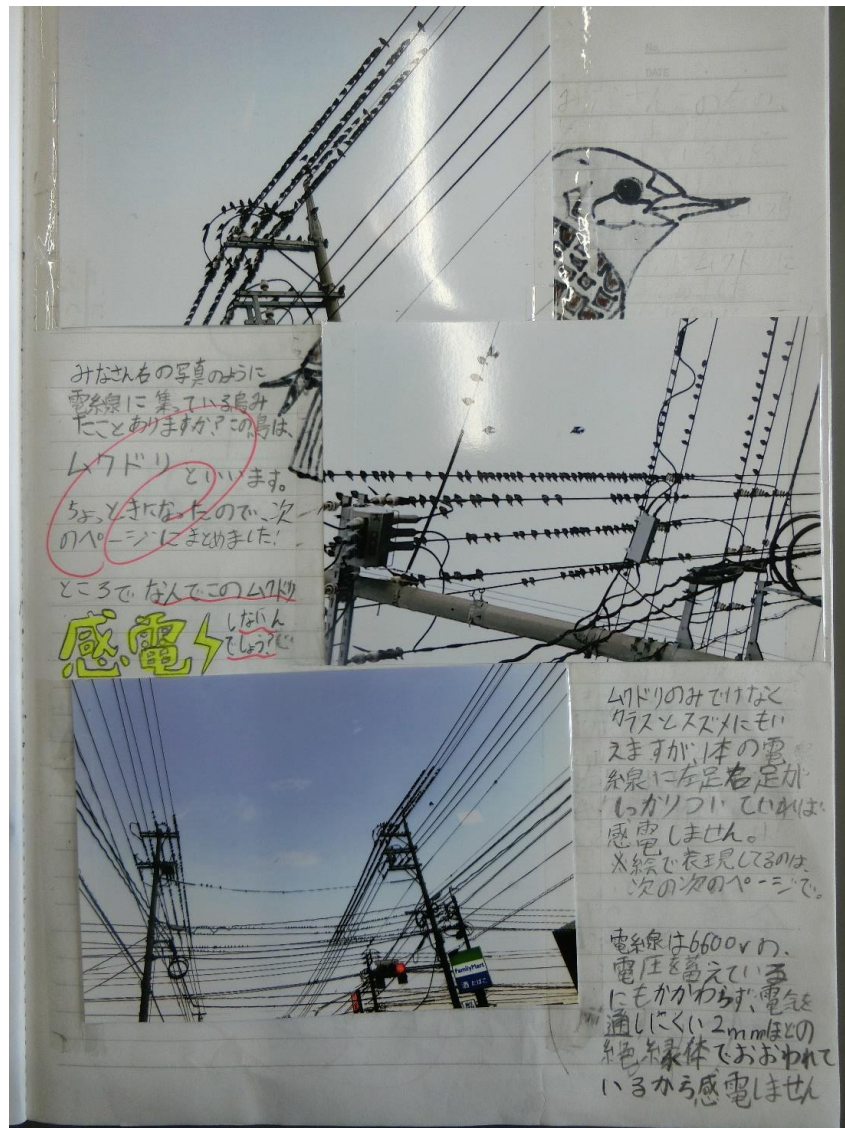 No.
DATE
みなさん右の写真のように
電線に集っている鳥み
たことありますか?この鳥は、
ムクドリ
といいます。
ちょっときになったので、次
のページにまとめました!
ところで なんでこのムクドリ
感電
しないん
でしょう?
ムクドリのみでけなく
カラスとスズメにもい
えますが、1本の電
線に左足右足が
しっかりついていれば
感電しません。
※絵で表現してるのは、
次の次のページで。
FamilyMart
酒 たばこ
電線は6600vの、
電圧を蓄えている
にもかかわらず、電気を
通しにくい2mmほどの
絶縁体でおおわれて
いるから感電しません